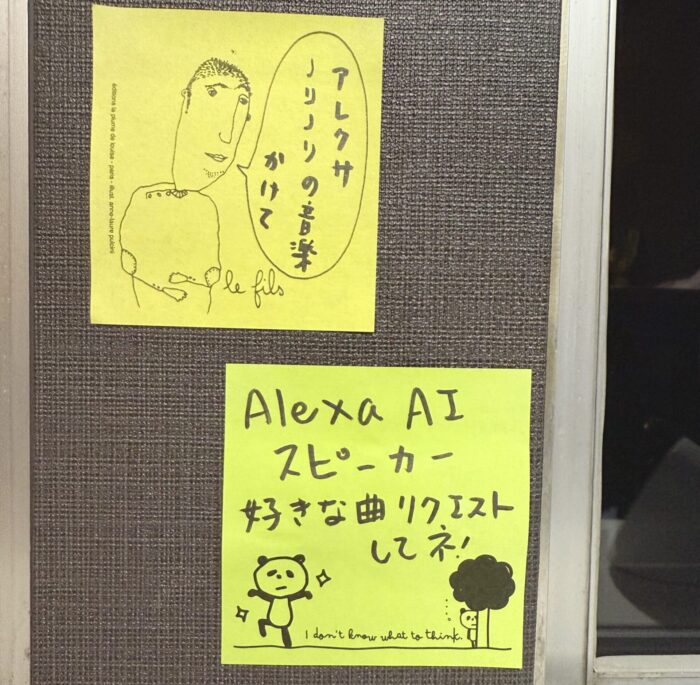 アレクサ
ノリノリの音楽
かけて
le fils
éditions la plume de louise - paris - illust. anne-laure
Alexa AI
スピーカー
好きな曲リクエスト
してネ!
I don't know what to think.